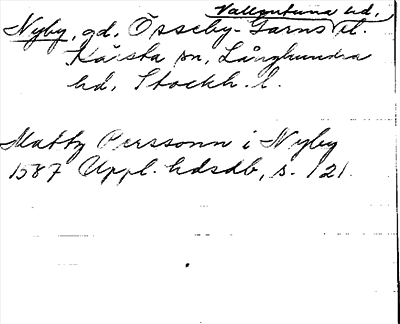 Vallentuna hd,
Nyby, gd, Össeby-Garns el.
Kårsta sn, Långhundra
hd, Stockh. l.
Mattz Perssonn i Nyby
1587 Uppl. hdsdb, s. 121.